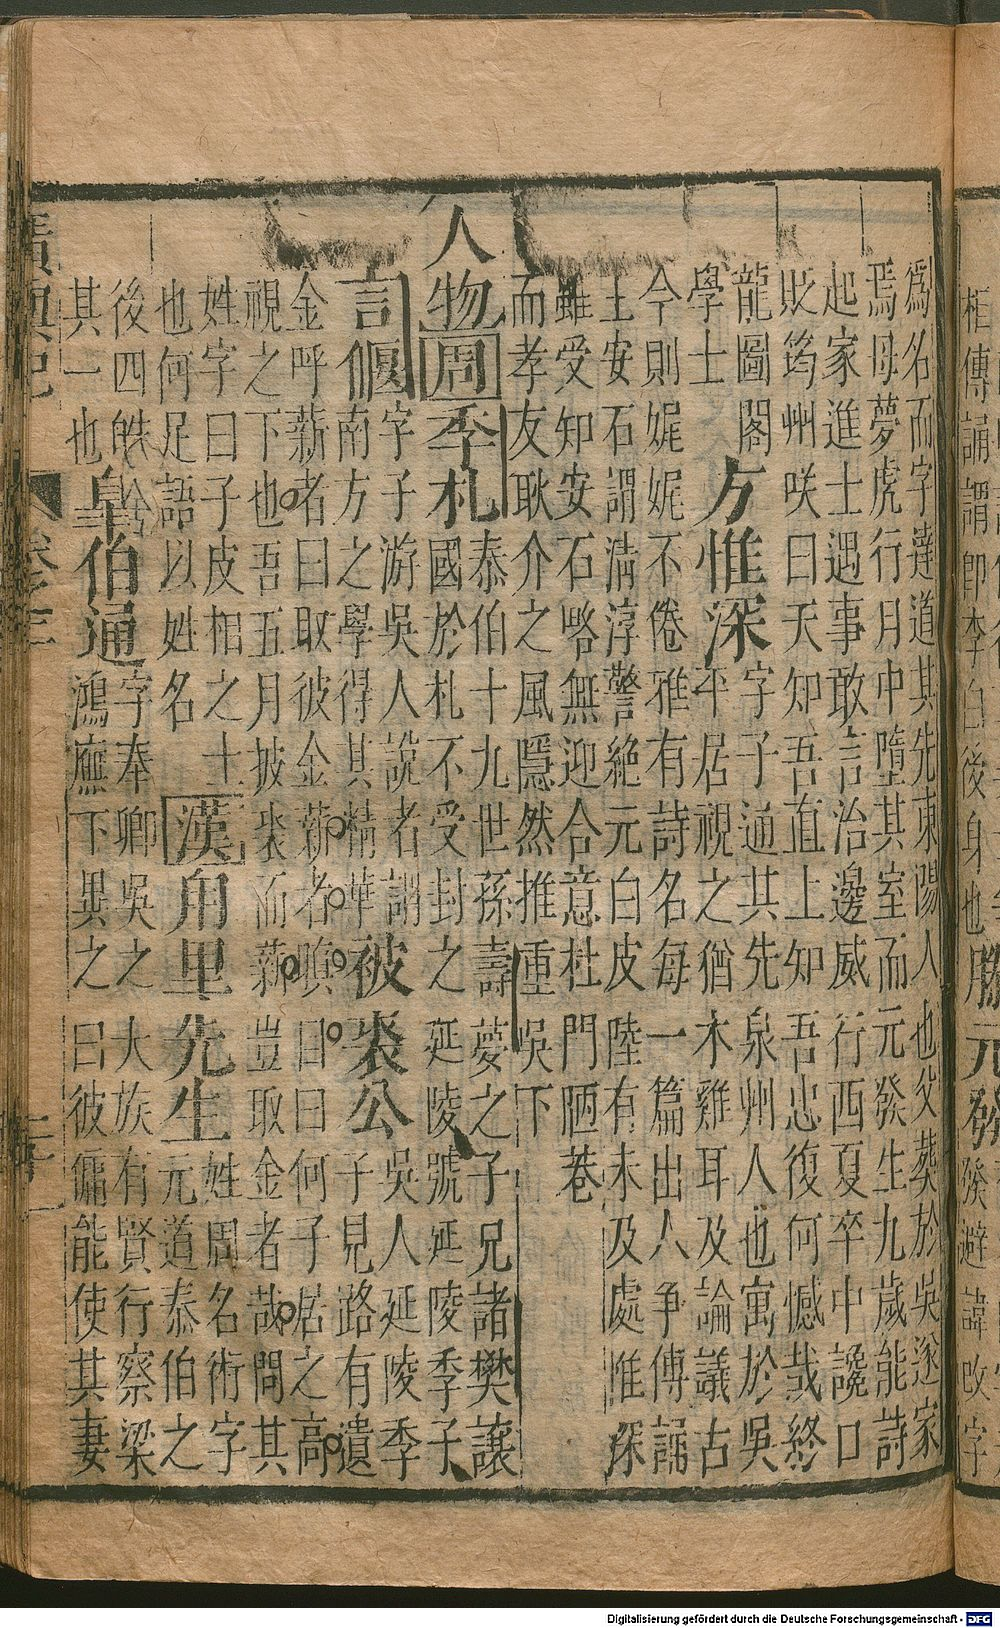 相傳誦謂即李白後身也滕元發發避諱改字
爲名而字達道其先東陽人也父葬於吳遂家
焉母夢虎行月中墮其室而元發生九歲能詩
起家進士遇事敢言治邊威行西夏卒中讒口
貶筠州咲曰天知吾直上知吾忠復何憾哉終
龍圖閣
學士
方惟深
字子通其先泉州人也寓於吳
平居視之猶木雞耳及論議古
今則娓娓不倦雅有詩名每一篇出人争傳誦
王安石謂清淳警絶元白皮陸有未及處惟深
雖受知安石畧無迎合意杜門陋巷
而孝友耿介之風隱然推重吳下
人物周季札
泰伯十九世孫壽夢之子兄諸樊讓
國於札不受封之延陵號延陵季子
言偃
字子游吳人說者謂
南方之學得其精華
被裘公
吳人延陵季
子見路有遺
金呼薪者曰取彼金薪者嗔目曰何子居之高
視之下也吾五月披裘而薪豈取金者哉問其
姓字曰子皮相之士
也何足語以姓名
漢甪里先生
姓周名術字
元道泰伯之
後四皓
其一也
皇伯通
字奉卿吳之大族有賢行察梁
鴻廡下異之曰彼傭能使其妻
廣輿記
卷之三
Digitalisierung gefördert durch die Deutsche Forschungsgemeinschaft - DFG